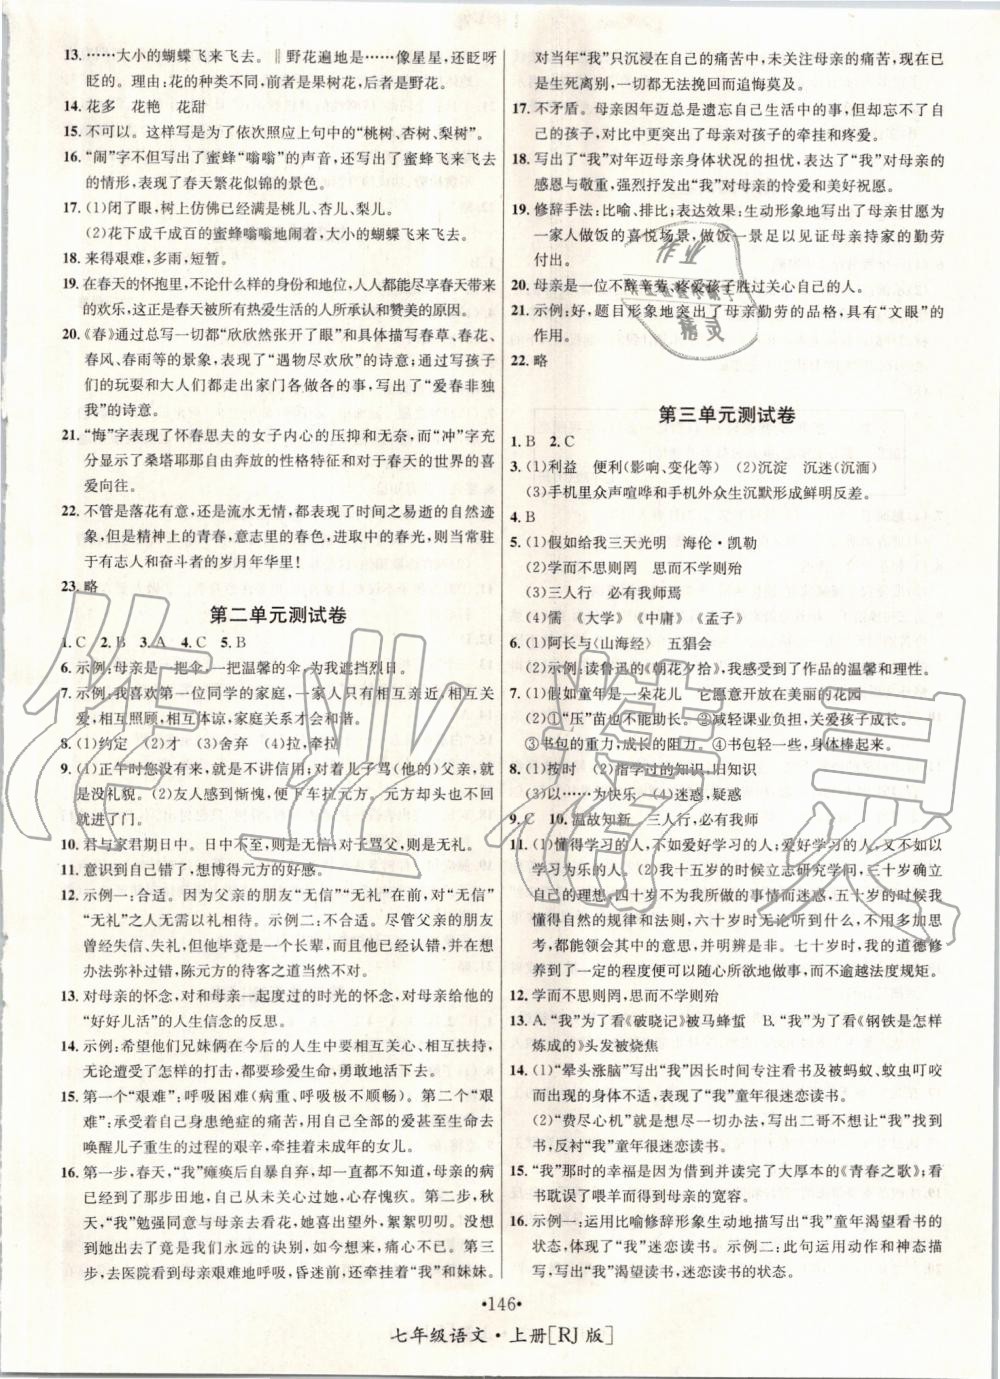 13. ……大小的蝴蝶飞来飞去。‖野花遍地是……像星星,还眨呀
眨的。理由:花的种类不同,前者是果树花,后者是野花。
14. 花多　花艳　花甜
15. 不可以。这样写是为了依次照应上句中的“桃树、杏树、梨树”。
16. “闹”字不但写出了蜜蜂“嗡嗡”的声音,还写出了蜜蜂飞来飞去
的情形,表现了春天繁花似锦的景色。
17. (1)闭了眼,树上仿佛已经满是桃儿、杏儿、梨儿。
(2)花下成千成百的蜜蜂嗡嗡地闹着,大小的蝴蝶飞来飞去。
18. 来得艰难,多雨,短暂。
19. 在春天的怀抱里,不论什么样的身份和地位,人人都能尽享春天带来
的欢乐,这正是春天被所有热爱生活的人所承认和赞美的原因。
20. 《春》通过总写一切都“欣欣然张开了眼”和具体描写春草、春花、
春风、春雨等的景象,表现了“遇物尽欢欣”的诗意;通过写孩子
们的玩耍和大人们都走出家门各做各的事,写出了“爱春非独
我”的诗意。
21. “悔”字表现了怀春思夫的女子内心的压抑和无奈,而“冲”字充
分显示了桑塔耶那自由奔放的性格特征和对于春天的世界的喜
爱向往。
22. 不管是落花有意,还是流水无情,都表现了时间之易逝的自然迹
象,但是精神上的青春,意志里的春色,进取中的春光,则当常驻
于有志人和奋斗者的岁月年华里!
23. 略
第二单元测试卷
1. C　2. B　3. A　4. C　5. B
6. 示例:母亲是一把伞,一把温馨的伞,为我遮挡烈日。
7. 示例:我喜欢第一位同学的家庭,一家人只有相互亲近,相互关
爱,相互照顾,相互体谅,家庭关系才会和谐。
8. (1)约定　(2)才　(3)舍弃　(4)拉,牵拉
9. (1)正午时您没有来,就是不讲信用;对着儿子骂(他的)父亲,就
是没礼貌。(2)友人感到惭愧,便下车拉元方,元方却头也不回
就进了门。
10. 君与家君期日中。日中不至,则是无信;对子骂父,则是无礼。
11. 意识到自己错了,想博得元方的好感。
12. 示例一:合适。因为父亲的朋友“无信”“无礼”在前,对“无信”
“无礼”之人无需以礼相待。示例二:不合适。尽管父亲的朋友
曾经失信、失礼,但他毕竟是一个长辈,而且已经认错,并在想
办法弥补过错,陈元方的待客之道有失礼仪。
13. 对母亲的怀念,对和母亲一起度过的时光的怀念,对母亲给他的
“好好儿活”的人生信念的反思。
14. 示例:希望他们兄妹俩在今后的人生中要相互关心、相互扶持,
无论遭受了怎样的打击,都要珍爱生命,勇敢地活下去。
15. 第一个“艰难”:呼吸困难(病重、呼吸极不顺畅)。第二个“艰
难”:力求以自己身患绝症的痛苦,用自己全部的爱甚至生命去
唤醒儿子重生的过程的艰辛,牵挂着未成年的女儿。
16. 第一步,春天,“我”瘫痪后自暴自弃,却一直不知道,母亲的病
已经到了那步田地,自己没关注到,心存愧疚。第二步,秋
天,“我”勉强同意与母亲去看花,她喜出望外,絮絮叨叨。没想
想到她出去竟是我们永远的诀别,如今想来,痛心不已。第三
步,去医院看到母亲艰难地呼吸,昏迷前,还牵挂着“我”和妹妹。
对当年“我”只沉浸在自己的痛苦中,未关注母亲的痛苦,现在已
是生死离别,一切都无法挽回而追悔莫及。
17. 不矛盾。母亲因年迈总是遗忘自己生活中的事,但却忘不了自
己的孩子,对比中更突出了母亲对孩子的牵挂和疼爱。
18. 写出了“我”对年迈母亲身体状况的担忧,表达了“我”对母亲的
感恩与敬重,强烈抒发了“我”对母亲的怜爱和美好祝愿。
19. 修辞手法:比喻、排比;表达效果:生动形象地写出了母亲甘愿为
一家人做饭的喜悦场景,做饭一景足以见证母亲持家的勤劳
付出。
20. 母亲是一位不辞辛劳、疼爱孩子胜过关心自己的人。
21. 示例:好,题目形象地突出了母亲勤劳的品格,具有“文眼”的
作用。
22. 略
第三单元测试卷
1. B　2. C
3. (1)利益　便利(影响、变化等)　(2)沉淀　沉迷(沉湎)
(3)手机里众声喧哗和手机外众生沉默形成鲜明反差。
4. B
5. (1)假如给我三天光明　海伦·凯勒
(2)学而不思则罔　思而不学则殆
(3)三人行　必有我师焉
(4)儒　《大学》《中庸》《孟子》
6. (1)阿长与《山海经》　五猖会
(2)示例:读鲁迅的《朝花夕拾》,我感受到了作品的温馨和理性。
7. (1)假如童年是一朵花儿　它愿意开放在美丽的花园
(2)①“压”苗也不能助长。②减轻课业负担,关爱孩子成长。
③书包的重力,成长的阻力。④书包轻一些,身体棒起来。
8. (1)按时　(2)指学过的知识,旧知识
(3)以……为快乐　(4)迷惑,疑惑
9. C　10. 温故知新　三人行,必有我师
11. (1)懂得学习的人,不如爱好学习的人;爱好学习的人,又不如以
学习为乐的人。(2)我十五岁的时候立志研究学问,三十岁确立
自己的理想,四十岁不为我所做的事情而迷惑,五十岁的时候我
懂得自然的规律和法则,六十岁时无论听到什么,不用多加思
考,都会领会其中的意思,并明辨是非。七十岁时,我的道德修
养到了一定的程度便可以随心所欲地做事,而不逾越法度规矩。
12. 学而不思则罔,思而不学则殆
13. A. “我”为了看《破晓记》被马蜂蜇　B. “我”为了看《钢铁是怎样
炼成的》头发被烧焦
14. (1)“晕头涨脑”写出“我”因长时间专注看书及被蚂蚁、蚊虫叮咬
而混混沌沌的状态,表现“我”童年很迷恋读书。
(2)“费尽心机”就是想尽一切办法,写出二哥不想让“我”找到
书,反衬“我”童年很迷恋读书。
15. “我”那时的幸福是因为借到并读完了大厚本的《青春之歌》;看
书耽误了喂羊而得到母亲的宽容。
16. 示例一:运用比喻修辞形象生动地描写出“我”童年渴望看书的
的状态,体现了“我”迷恋读书。示例二:此句运用动作和神态描
写,写出“我”渴望读书、迷恋读书的状态。
·146·
七年级语文·上册[RJ版]
作业
精灵
作业精灵